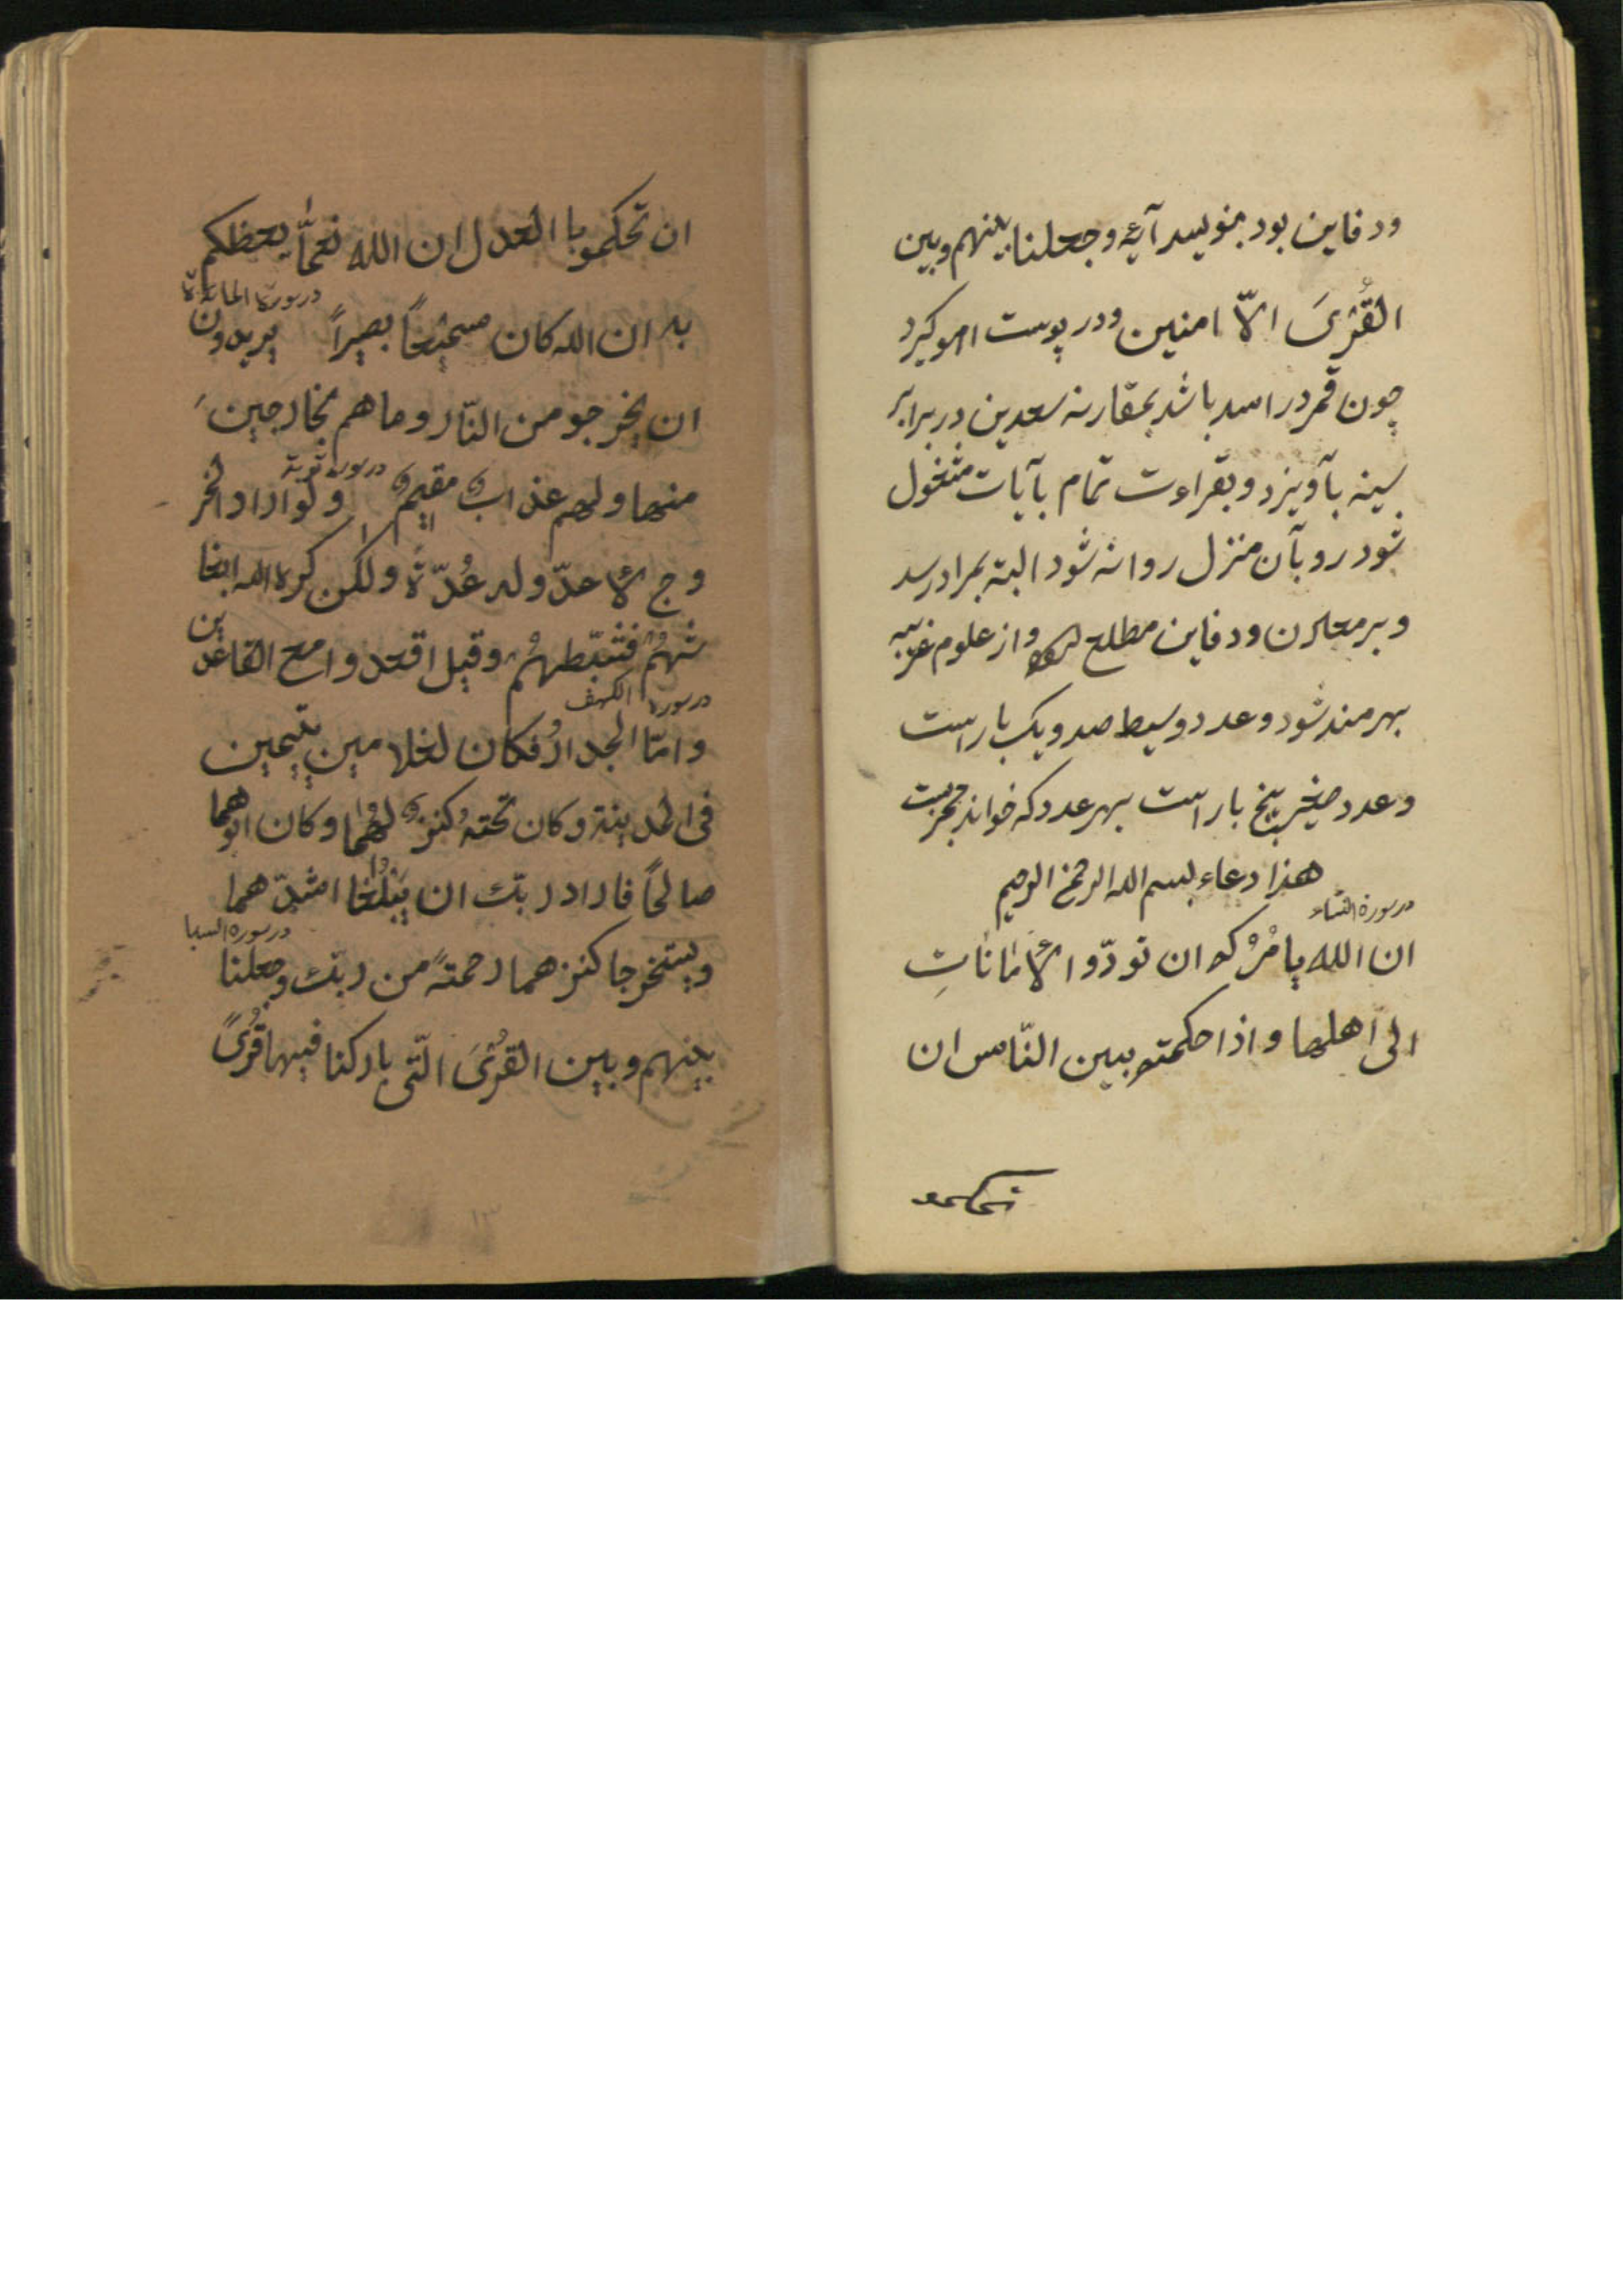 ودفاین بود بنویسد آیهٔ وجعلنا بینهم وبین
القُرَىَ الّا امنین ودر پوست اهو کیرد
چون قمر در اسد باشد بمقارنه سعدین در برابر
سینه بآویزد وبقراءت تمام بآیات مشغول
شود رو بآن منزل روانه شود البته بمراد رسد
وبر معادن ودفاین مطلع وازعلوم غریبه
بهرمند شود وعدد وسیط صد ویک بار است
وعدد صغیر پنج بار است بهر عدد که خواند مجربست
هذا دعاء بسم الله الرحمن الرحیم
در سورة النساء
ان الله یامُرُکم ان تودّوا الاَمانَاتِ
الی اهلها واذا حکمتم بین النّاس ان
تحکمو
ان تحکمو با العدل ان الله نعمّا یعظکم
در سورة المائدة
به ان الله کان سمیعاً بصیراً یریدون
ان یخرجو من النّار وما هم بخارجینَ
در سوره توبة
منها ولهم عذابٌ مقیمٌ ولو اراد الخر
وج لاعدّ وله عُدّةً ولکن کره الله انبعا
ثهُمْ فثبّطهُمْ وقیل اقعدوا مع القاعدین
در سورة الکهف
وامّا الجدارُ فکان لغلامین یتیمین
فی المدینة وکان تحتهُ کنزٌ لهُما وکان ابوهما
صالحاً فاراد ربّك ان یَبْلُغا اشدّهما
در سوره السبا
ویستخرجا کنزهما رحمتهً من ربّك وجعلنا
بینهم وبین القُرَىَ الّتی بارکنا فیها قُرًى
١٣